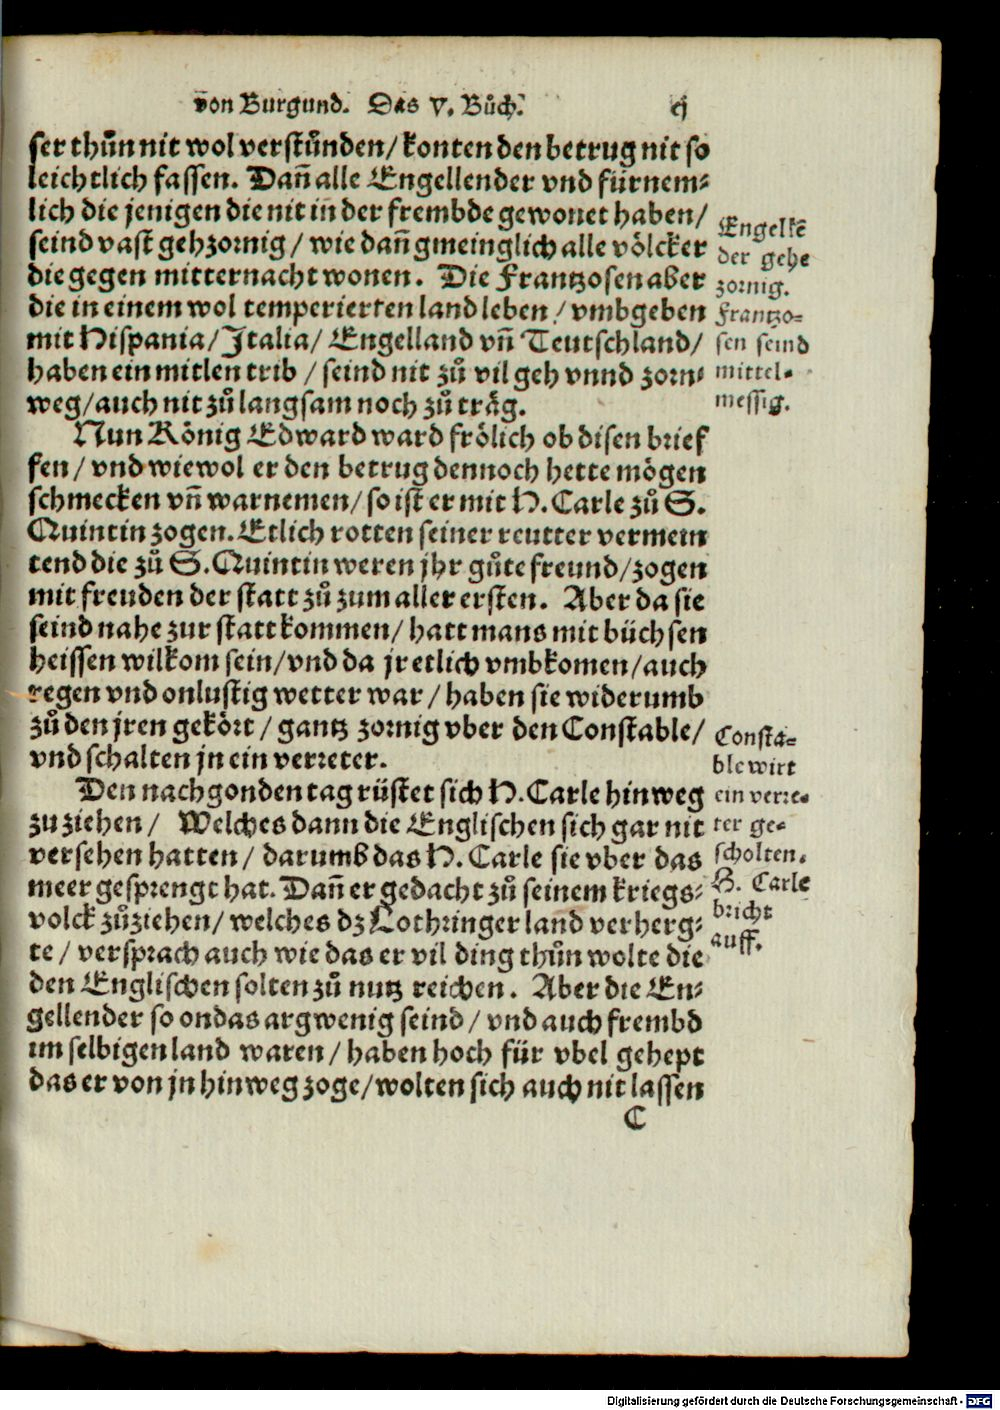 von Burgund. Das V. Bůch.
cj
ser thůn nit wol verstůnden/ konten den betrug nit so
leichtlich fassen. Dañ alle Engellender vnd fürnem⸗
lich die jenigen die nit in der frembde gewonet haben/
seind vast gehzornig/ wie dañ gmeinglich alle völcker
die gegen mitternacht wonen. Die Frantzosen aber
die in einem wol temperierten land leben/ vmbgeben
mit Hispania/ Jtalia/ Engelland vñ Teutschland/
haben ein mitlen trib/ seind nit zů vil geh vnnd zorn⸗
weg/ auch nit zů langsam noch zů träg.
Engellē
der gehe
zornig.
Frantzo⸗
sen seind
mittel⸗
messig.
Nun König Edward ward frölich ob disen brief
fen/ vnd wiewol er den betrug dennoch hette mögen
schmecken vñ warnemen/ so ist er mit H. Carle zů S.
Quintin zogen. Etlich rotten seiner reutter vermein
tend die zů S. Quintin weren jhr gůte freund/ zogen
mit freuden der statt zů zum aller ersten. Aber da sie
seind nahe zur statt kommen/ hatt mans mit büchsen
heissen wilkom sein/ vnd da jr etlich vmbkomen/ auch
regen vnd onlustig wetter war/ haben sie widerumb
zů den jren gekört/ gantz zornig vber den Constable/
vnd schalten jn ein verreter.
Consta⸗
ble wirt
ein verre⸗
ter ge⸗
scholten.
Den nachgonden tag rüstet sich H. Carle hinweg
zu ziehen/ Welches dann die Englischen sich gar nit
versehen hatten/ darumb das H. Carle sie vber das
meer gesprengt hat. Dañ er gedacht zů seinem kriegs⸗
volck zů ziehen/ welches dz Lothringer land verherg⸗
te/ versprach auch wie das er vil ding thůn wolte die
den Englischen solten zů nutz reichen. Aber die En⸗
gellender so ondas argwenig seind/ vnd auch frembd
im selbigen land waren/ haben hoch für vbel gehept
das er von jn hinweg zoge/ wolten sich auch nit lassen
H. Carle
bricht
auff.
C
Digitalisierung gefördert durch die Deutsche Forschungsgemeinschaft - DFG